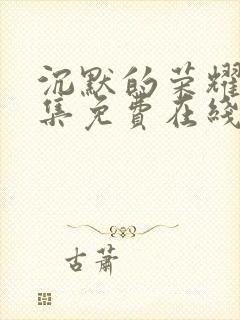 沉默的荣耀
集免费在线
古萧